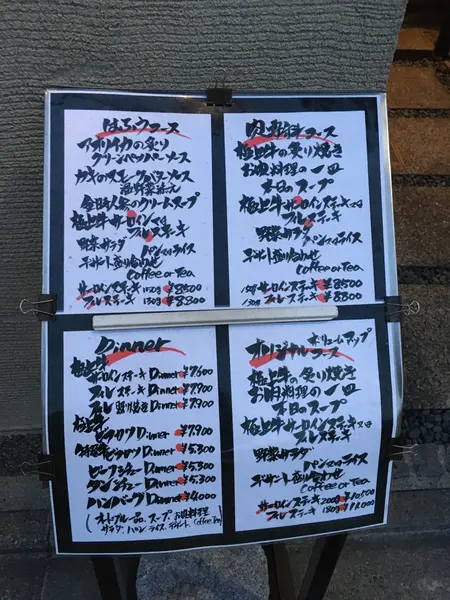 はふうコース
アオリイカの炙り
グリーンペッパーソース
カキのスモークバターソース
温野菜添え
金時人参のクリームスープ
極上牛サーロイン又は
フィレステーキ
野菜サラダ
パン又はライス
デザート盛り合わせ
Coffee or Tea
サーロインステーキ 150g ¥8500
フィレステーキ 130g ¥8800
コース
極上牛の炙り焼き
お肉料理の一皿
本日のスープ
極上牛サーロインステーキ又は
フィレステーキ
野菜サラダ
パン又はライス
デザート盛り合わせ
Coffee or Tea
150g サーロインステーキ ¥8500
130g フィレステーキ ¥8800
Dinner
極上牛
サーロインステーキ Dinner ¥7600
フィレステーキ Dinner ¥7,900
フィレ 焼き Dinner ¥7,900
極上牛
ビフカツ Dinner ¥7,900
ビフカツ Dinner ¥5,300
ビーフシチュー Dinner ¥5,300
タンシチュー Dinner ¥5,300
ハンバーグ Dinner ¥4,000
(オードブル一品、スープ、お肉料理
サラダ、パン、ライス、デザート、Coffee, Tea)
ボリュームアップ
オリジナルコース
極上牛の炙り焼き
お肉料理の一皿
本日のスープ
極上牛サーロインステーキ又は
フィレステーキ
野菜サラダ
パン又はライス
デザート盛り合わせ
Coffee or Tea
サーロインステーキ 200g ¥10,500
フィレステーキ 180g ¥11,000